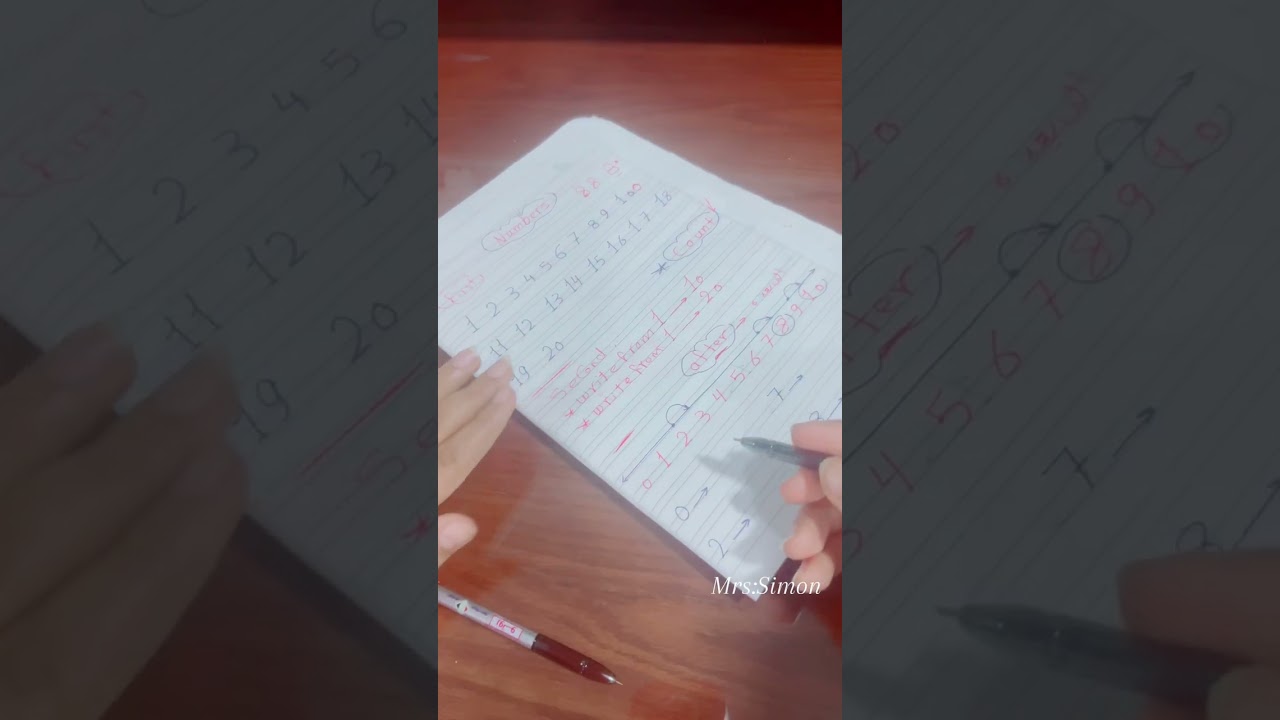 Numbers
First
1 2 3 4 5 6 7 8 9 10
11 12 13 14 15 16 17 18
19 20
* Count
Second
* write from 1 → 10
* write from 1 → 20
after →
0 1 2 3 4 5 6 7 8 9 10
0 → 7 →
2 → 3 →
Mrs:Simon